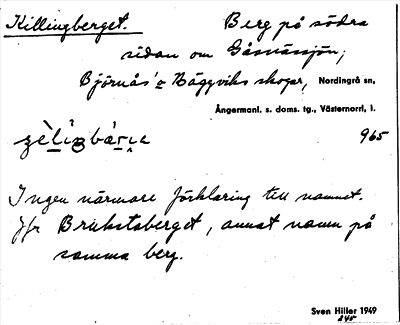 Killingberget. Berg på södra
sidan om Gåsnässjön;
Björnås' o Häggviks skogar, Nordingrå sn,
Ångermanl. s. doms. tg., Västernorrl, l.
965
Ingen närmare förklaring till namnet.
Jfr Brukstaberget, annat namn på
samma berg.
Sven Hiller 1949